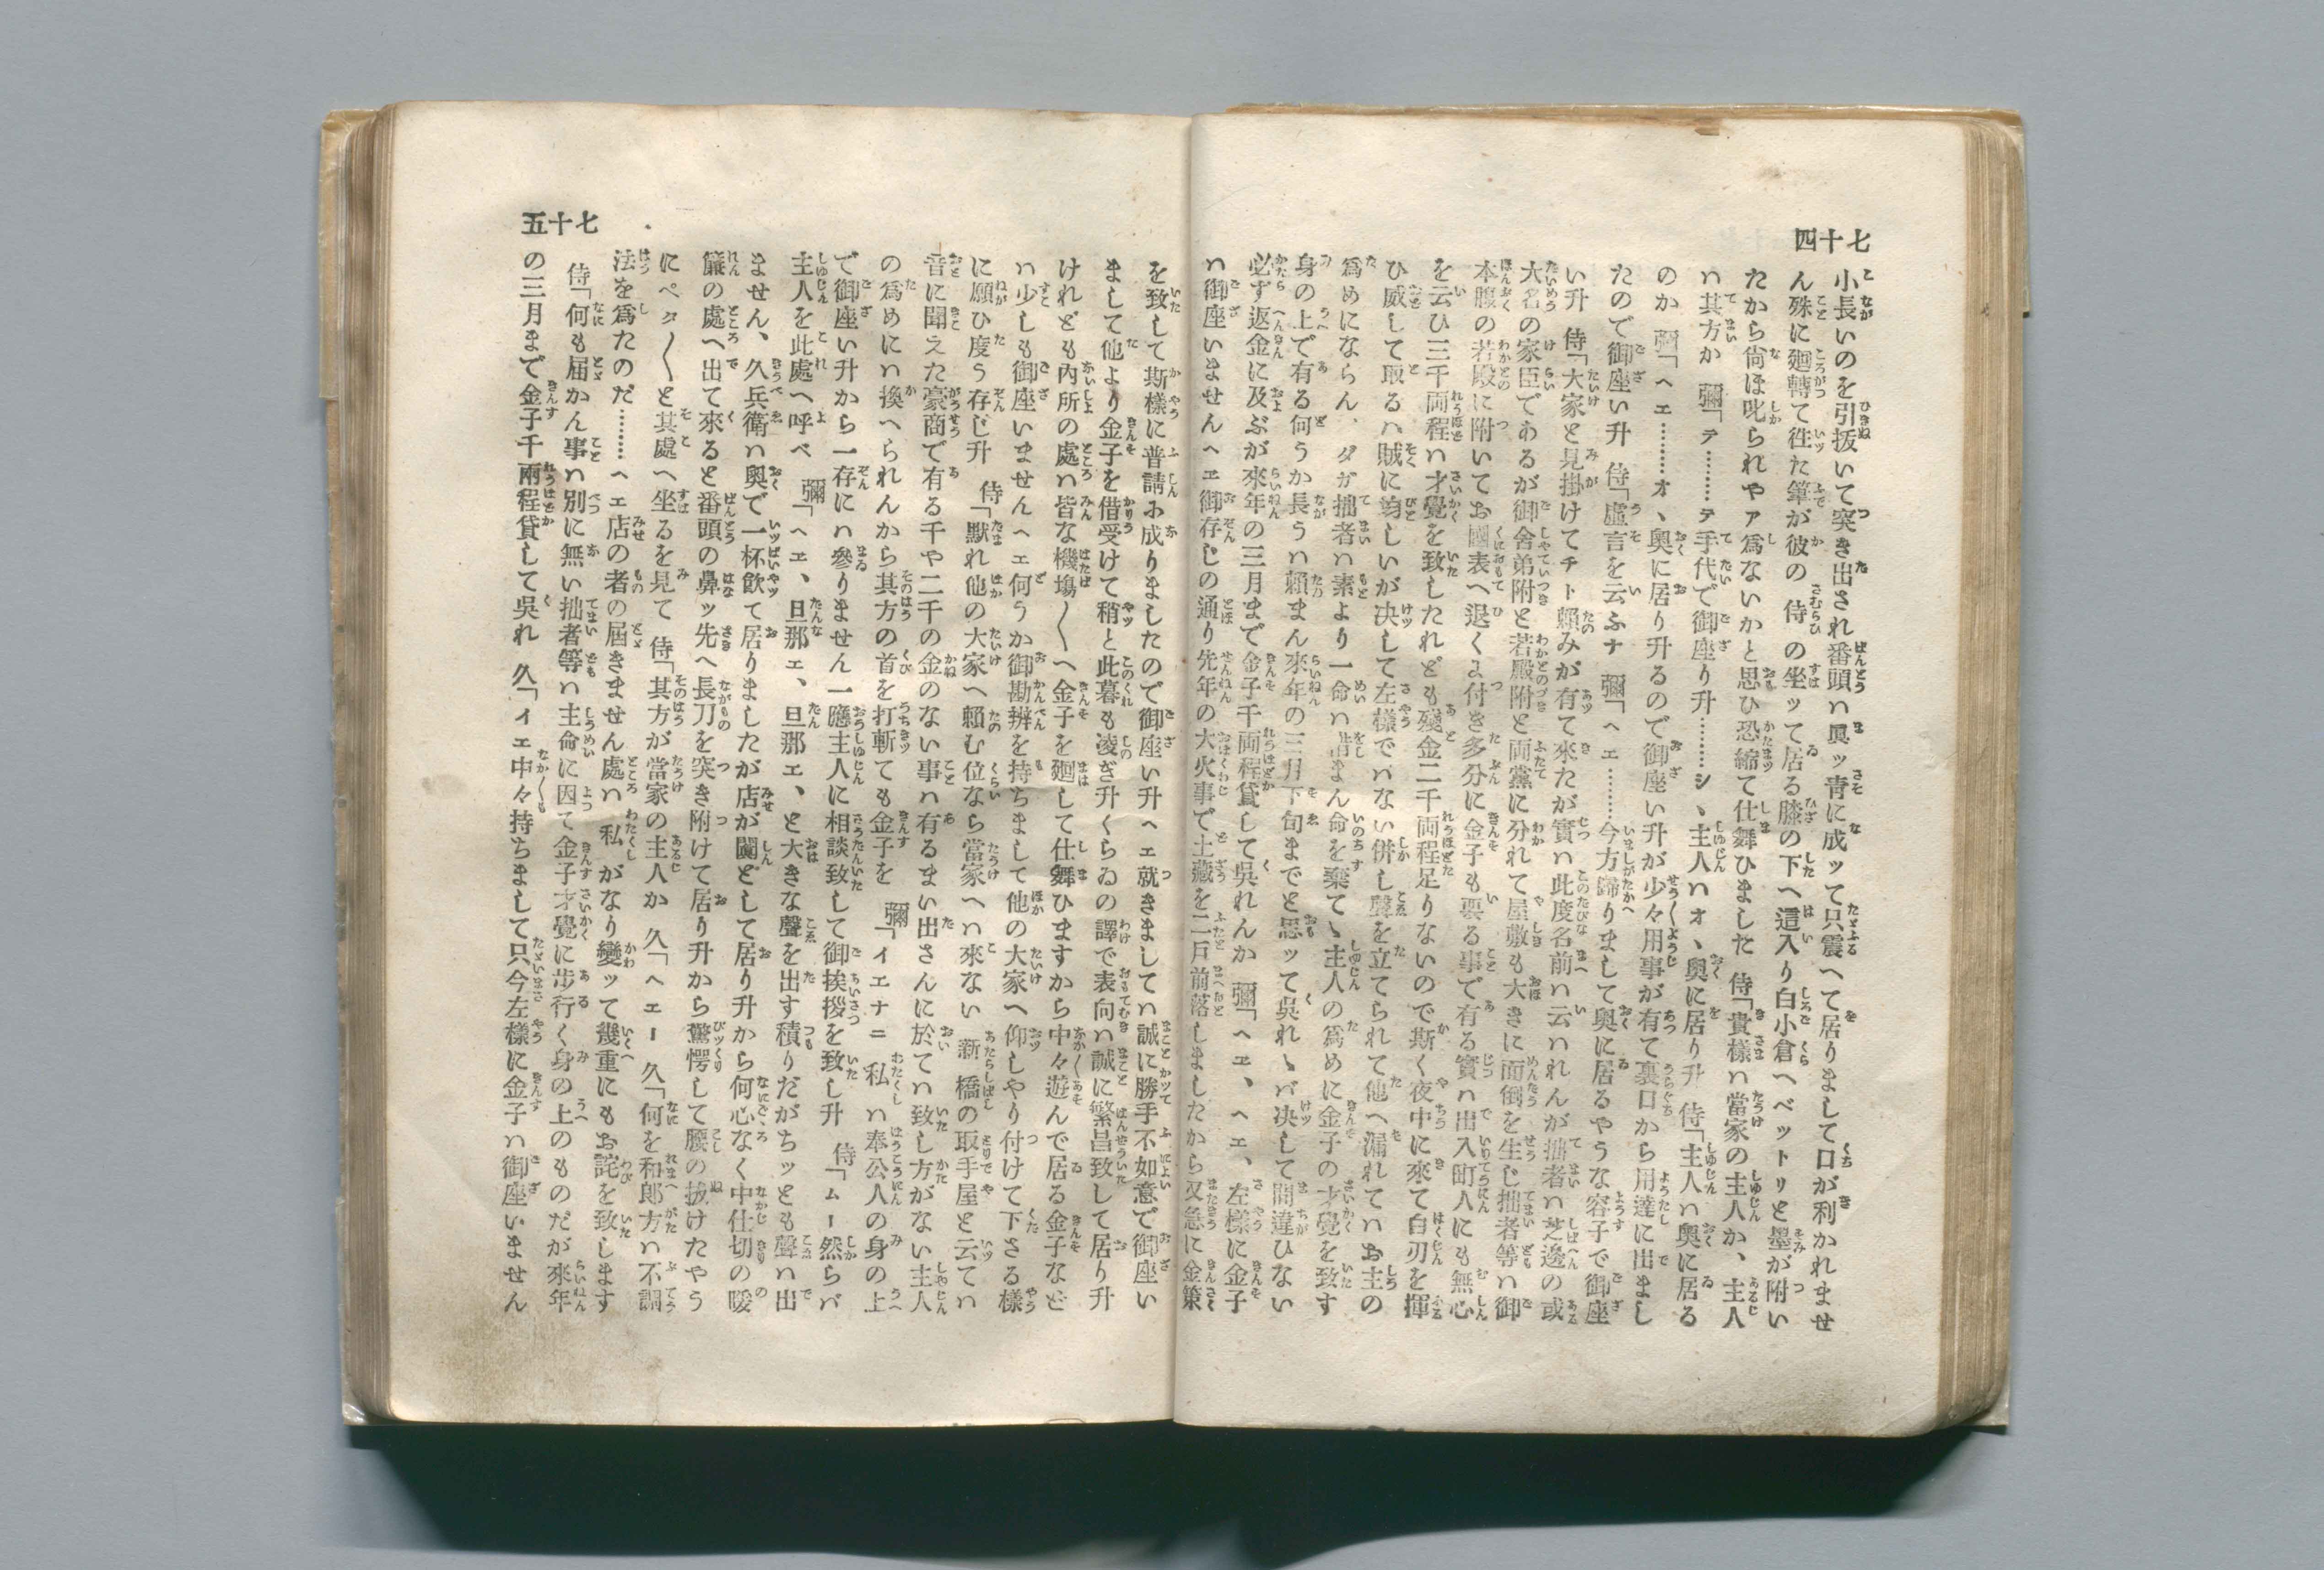 七十四
小長いのを引拔いて突き出され番頭ハ眞ッ靑に成ッて只震へて居りまして口が利かれませ
ん殊に廻轉て徃た筆が彼の侍の坐ッて居る膝の下へ這入り白小倉へベットリと墨が附い
たから尙ほ叱られやア爲ないかと思ひ恐縮て仕舞ひました 侍「貴樣ハ當家の主人か、主人
ハ其方か 彌「テ………テ手代で御座り升………シヽ主人ハオヽ奧に居り升 侍「主人ハ奧に居る
のか 彌「ヘエ………オヽ奧に居り升るので御座い升が少々用事が有て裏口から用達に出まし
たので御座い升 侍「虛言を云ふナ 彌「ヘエ………今方歸りまして奧に居るやうな容子で御座
い升 侍「大家と見掛けてチト賴みが有て來たが實ハ此度名前ハ云ハれんが拙者ハ芝邊の或
大名の家臣であるが御舍弟附と若殿附と両黨に分れて屋敷も大きに面倒を生じ拙者等ハ御
本腹の若殿に附いてお國表へ退くよ付き多分に金子も要る事で有る實ハ出入町人にも無心
を云ひ三千両程ハ才覺を致したれども殘金二千両程足りないので斯く夜中に來て白刃を揮
ひ威して取るハ賊に均しいが决して左樣でハない併し聲を立てられて他へ漏れてハお主の
爲めにならん、ダガ拙者ハ素より一命ハ惜まん命を棄てヽ主人の爲めに金子の才覺を致す
身の上で有る何うか長うハ賴まん來年の三月下旬までと思ッて吳れヽバ决して間違ひない
必ず返金に及ぶが來年の三月まで金子千両程貸して吳れんか 彌「ヘエ、ヘエ、左樣に金子
ハ御座いませんヘエ御存じの通り先年の大火事で土藏を二戶前落しましたから又急に金策
七十五
を致して斯樣に普請ふ成りましたので御座い升ヘエ就きましてハ誠に勝手不如意で御座い
まして他より金子を借受けて稍と此暮も凌ぎ升くらゐの譯で表向ハ誠に繁昌致して居り升
けれども內所の處ハ皆な機塲〳〵へ金子を廻して仕舞ひますから中々遊んで居る金子など
ハ少しも御座いませんヘエ何うか御勘辨を持ちまして他の大家へ仰しやり付けて下さる樣
に願ひ度う存じ升 侍「默れ他の大家へ賴む位なら當家へハ來ない新橋の取手屋と云てハ
音に聞えた豪商で有る千や二千の金のない事ハ有るまい出さんに於てハ致し方がない主人
の爲めにハ換へられんから其方の首を打斬ても金子を 彌「イエナニ私ハ奉公人の身の上
で御座い升から一存にハ參りません一應主人に相談致して御挨拶を致し升 侍「ムー然らバ
主人を此處へ呼べ 彌「ヘエ、旦那エ、旦那エ、と大きな聲を出す積りだがちッとも聲ハ出
ません、久兵衛ハ奧で一杯飮て居りましたが店が闃として居り升から何心なく中仕切の暖
簾の處へ出て來ると番頭の鼻ッ先へ長刀を突き附けて居り升から驚愕して腰の拔けたやう
にペタ〳〵と其處へ坐るを見て 侍「其方が當家の主人か 久「ヘエー 久「何を和郎方ハ不調
法を爲たのだ………ヘエ店の者の屆きません處ハ私がなり變ッて幾重にもお詫を致します
侍「何も屆かん事ハ別に無い拙者等ハ主命に因て金子才覺に步行く身の上のものだが來年
の三月まで金子千兩程貸して吳れ 久「イエ中々持ちまして只今左樣に金子ハ御座いません